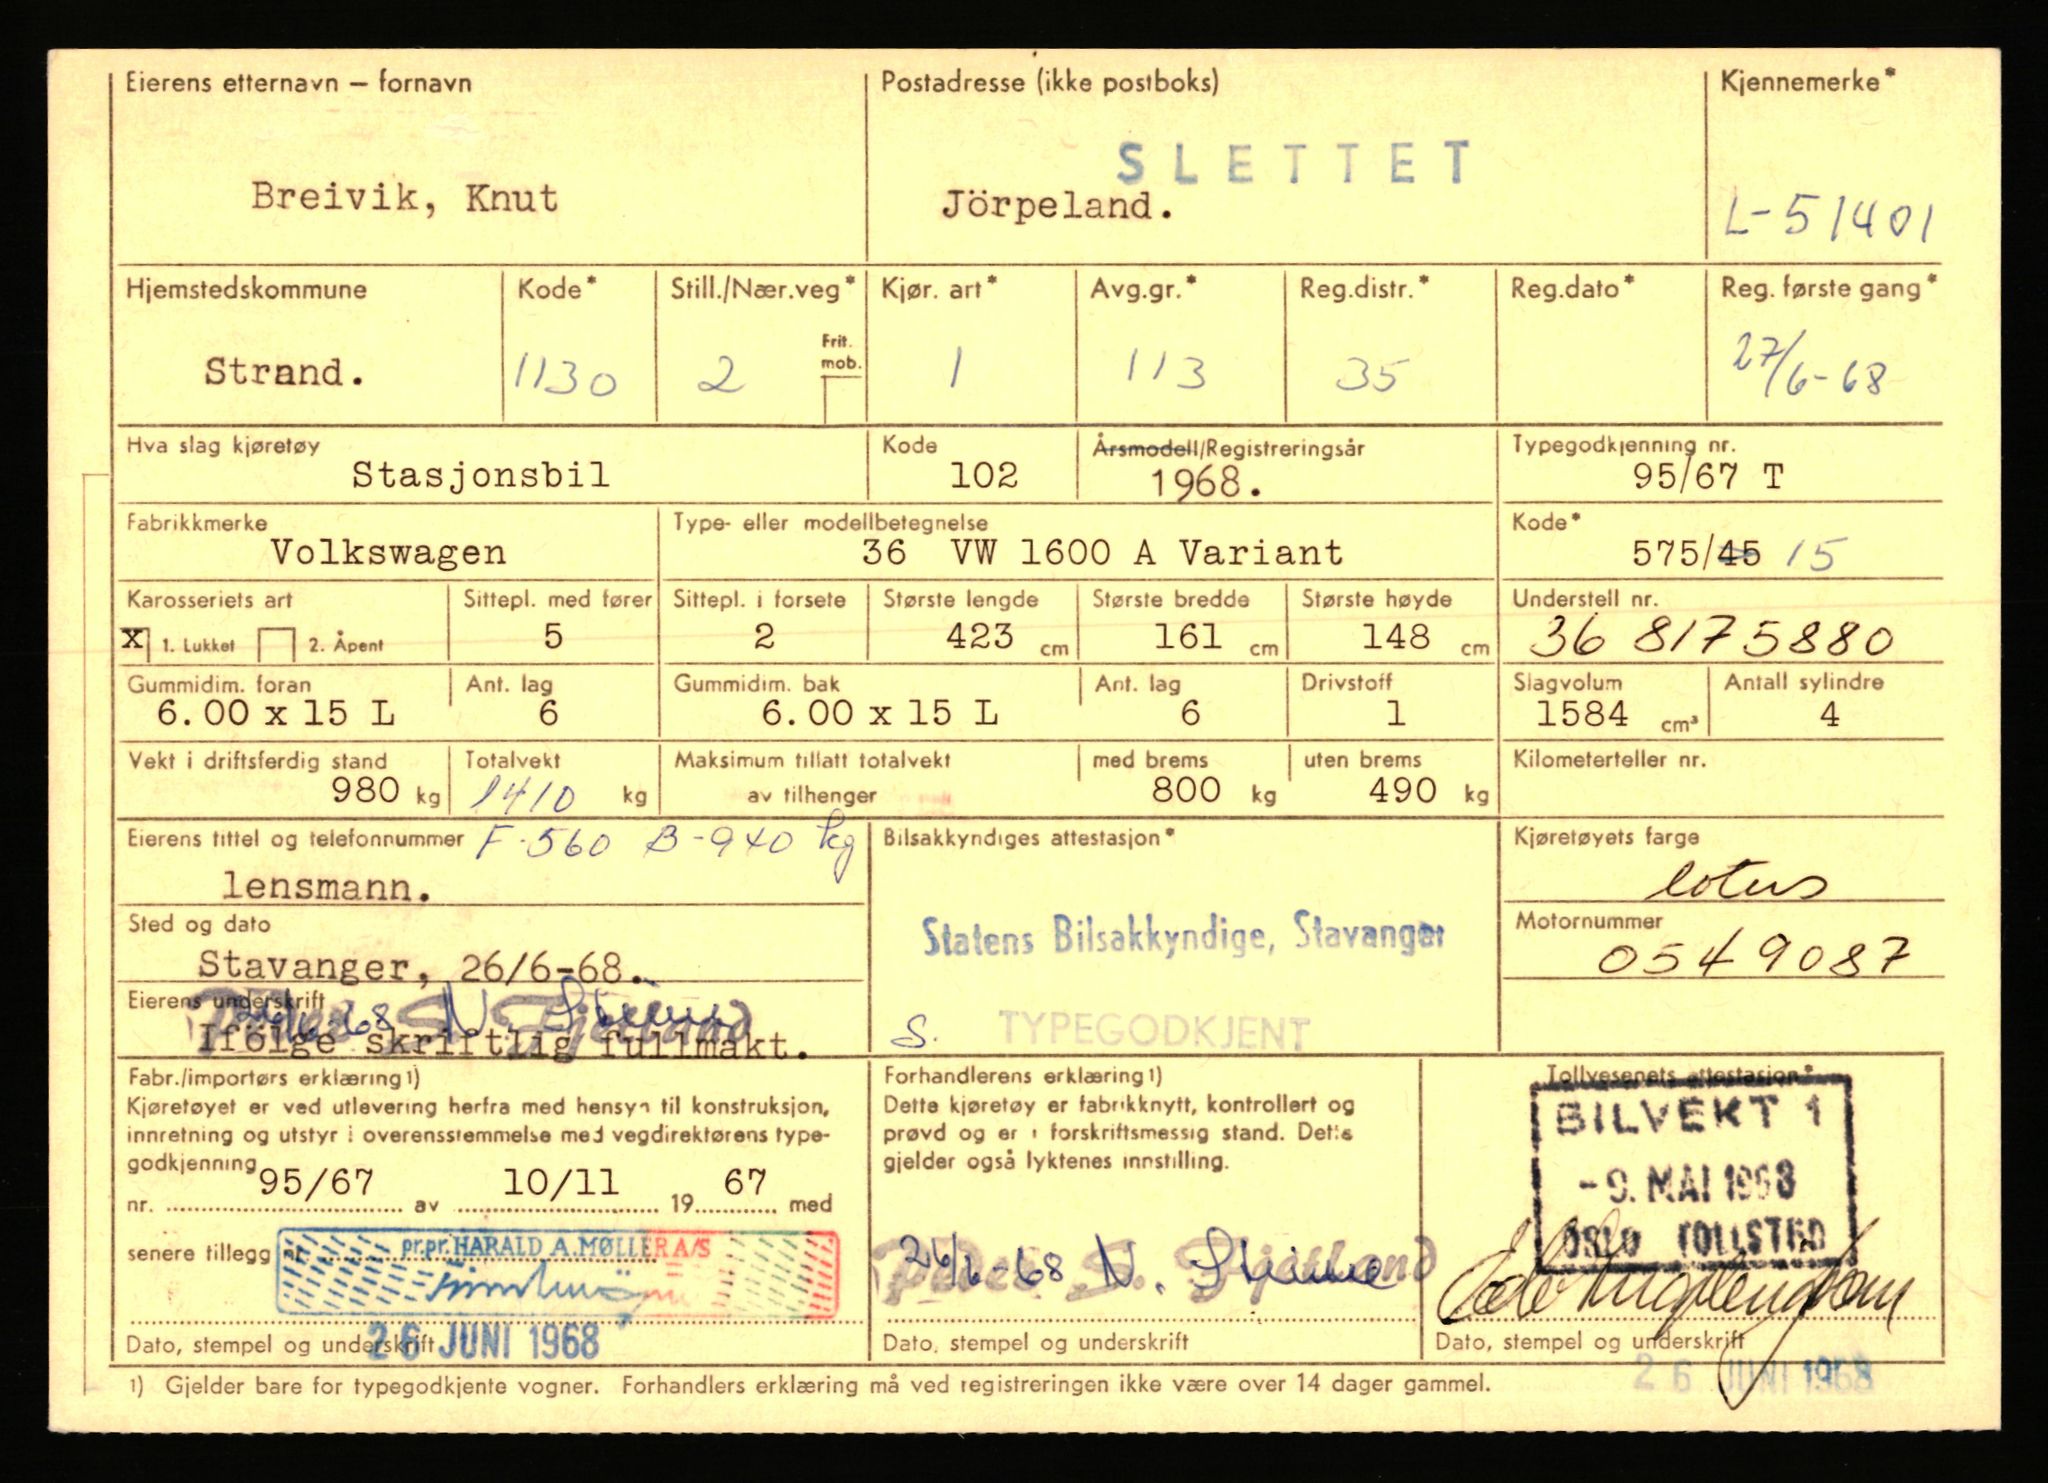 Eierens etternavn — fornavn Postadresse (ikke postboks) Kjennemerke*
SLETTET
Breivik, Knut Jörpeland. L-51401
Hjemstedskommune Kode* Still./Nær.veg* Kjør. art* Avg.gr.* Reg.distr.* Reg.dato* Reg. første gang*
Frit. mob.
Strand. 1130 2 1 113 35 27/6-68
Hva slag kjøretøy Kode Årsmodell/Registreringsår Typegodkjenning nr.
Stasjonsbil 102 1968. 95/67 T
Fabrikkmerke Type- eller modellbetegnelse Kode*
Volkswagen 36 VW 1600 A Variant 575/45 15
Karosseriets art Sittepl. med fører Sittepl. i forsete Største lengde Største bredde Største høyde Understell nr.
x 1. Lukket 2. Åpent 5 2 423 cm 161 cm 148 cm 36 8175880
Gummidim. foran Ant. lag Gummidim. bak Ant. lag Drivstoff Slagvolum Antall sylindre
6.00 x 15 L 6 6.00 x 15 L 6 1 1584 cm³ 4
Vekt i driftsferdig stand Totalvekt Maksimum tillatt totalvekt med brems uten brems Kilometerteller nr.
980 kg 1410 kg av tilhenger 800 kg 490 kg
Eierens tittel og telefonnummer F-560 B-940 kg Bilsakkyndiges attestasjon* Kjøretøyets farge
lensmann. lotus
Sted og dato Statens Bilsakkyndige, Stavanger Motornummer
Stavanger, 26/6-68. 0549087
Eierens underskrift
26/6-68 N.
Ifölge skriftlig fullmakt. S. TYPEGODKJENT
Fabr./importørs erklæring 1) Forhandlerens erklæring 1) Tollvesenets attestasjon*
Kjøretøyet er ved utlevering herfra med hensyn til konstruksjon, Dette kjøretøy er fabrikknytt, kontrollert og BILVEKT 1
innretning og utstyr i overensstemmelse med vegdirektørens type- prøvd og er i forskriftsmessig stand. Dette
godkjenning gjelder også lyktenes innstilling.
nr. 95/67 av 10/11 19 67 med -9. MAI 1968
senere tillegg nr. pr.pr. HARALD A. MØLLER A/S 26/6-68 N. OSLO TOLLSTED
Dato, stempel og underskrift 26 JUNI 1968 Dato, stempel og underskrift Dato, stempel og underskrift
1) Gjelder bare for typegodkjente vogner. Forhandlers erklæring må ved registreringen ikke være over 14 dager gammel. 26 JUNI 1968